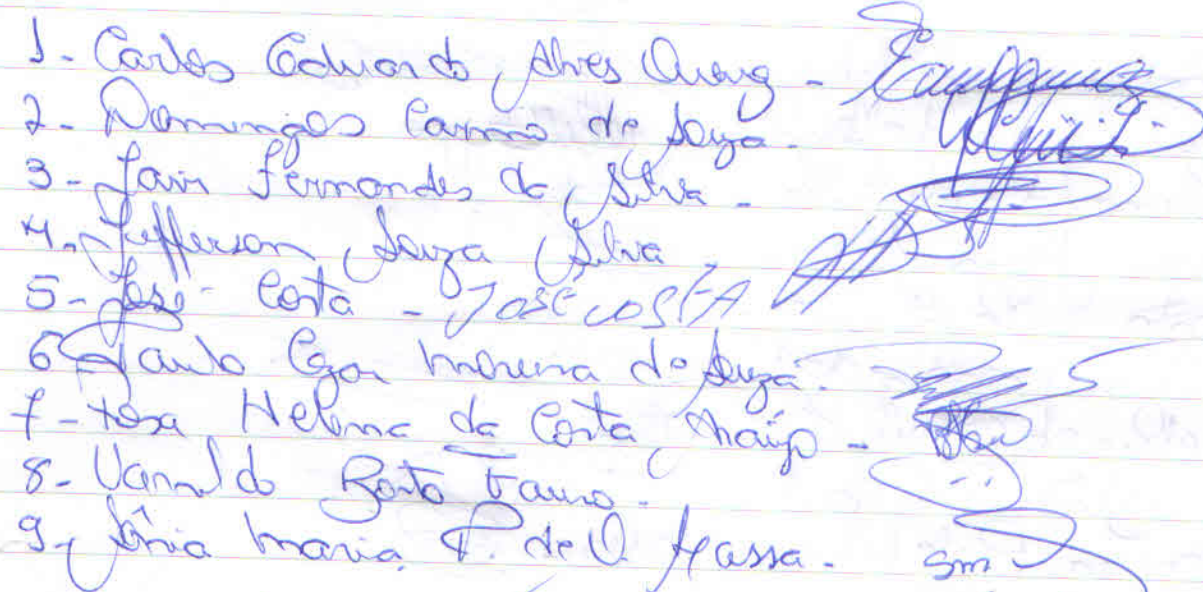 1- Carlos Eduardo Alves
2- Domingos Carmo de Souza -
3- Jair Fernandes da Silva -
4- Jefferson Souza Silva -
5- José Costa - JOSÉ COSTA
6- Paulo Cezar Moreira de Souza -
7- Rosa Helena da Costa Araújo -
8- Porto
9- Sônia Maria P. de O. Massa - Sm